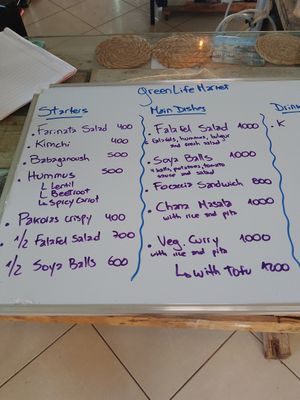 GreenLife Market
Starters
• Farinata Salad 400
• Kimchi 400
• Babaganoush 500
• Hummus 500
L Lentil
L Beetroot
L Spicy Carrot
• Pakoras crispy 400
• 1/2 Falafel Salad 700
• 1/2 Soya Balls 600
Main Dishes
• Falafel Salad 1000
Falafels, hummus, bulgur
and fresh salad
• Soya Balls 1000
4 balls, potatoes, tomato
sauce and salad
• Focaccia Sandwich 800
• Chana Masala 1000
with rice and pita
• Veg. Curry 1000
with rice and pita
↳ with Tofu 1200
Drin
• K